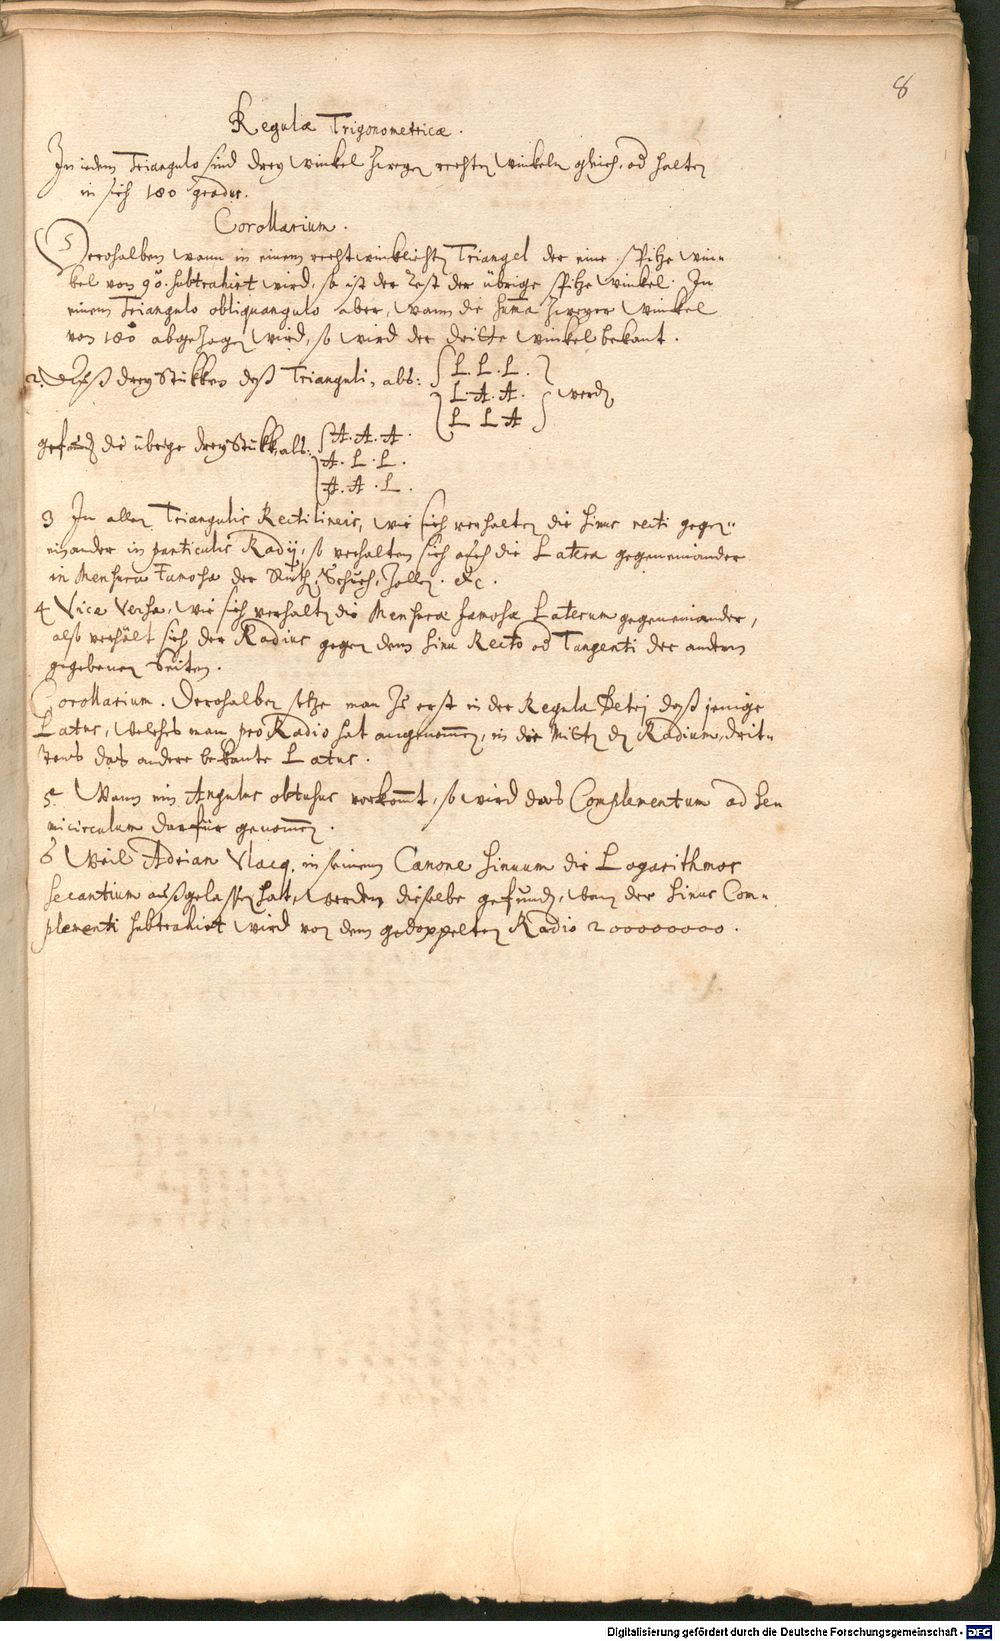 8
Regulæ Trigonometricæ.
In iedem Triangulo sind drey winkel zweyen rechten winkeln gleich, od halten
in sich 180 gradus.
Corollarium.
Derohalben wann in einem rechtwinklichten Triangel der eine spitze win-
kel von 90° subtrahirt wird, so ist der Rest der übrige spitze winkel. In
einem Triangulo obliquangulo aber, wann die summa zweyer winkel
von 180 abgezogen wird, so wird der dritte winkel bekant.
2. Auß drey Stükken deß Trianguli, als: L. L. L.
L. A. A. werden
L L A
gefunden die übrige drey Stükk, als: A. A. A.
A. L. L.
A. A. L.
3 In allen Triangulis Rectilineis, wie sich verhalten die sinus recti gegen-
einander in particulis Radij, so verhalten sich auch die Latera gegeneinander
in Mensura Famosa der Ruth, Schuch, Zollen. &c.
4 Vice Versa, wie sich verhalten die Mensuræ famosæ Laterum gegeneinander,
also verhält sich der Radius gegen dem sinu Recto od Tangenti der andern
gegebenen Seiten.
Corollarium. Derohalben setze man zu erst in der Regula Detrj daß jenige
Latus, welches man pro Radio hat angenommen, in die Mitten den Radium, drit-
tens das andere bekante Latus.
5. Wann ein Angulus obtusus vorkommt, so wird das Complementum ad Se
micirculum darfür genommen.
6 Weil Adrian Vlacq in seinem Canone sinuum die Logarithmos
secantium außgelassen hatt, werden dieselbe gefunden, wann der sinus Com-
plementi subtrahirt wird von dem gedoppelten Radio 200000000.
Digitalisierung gefördert durch die Deutsche Forschungsgemeinschaft - DFG